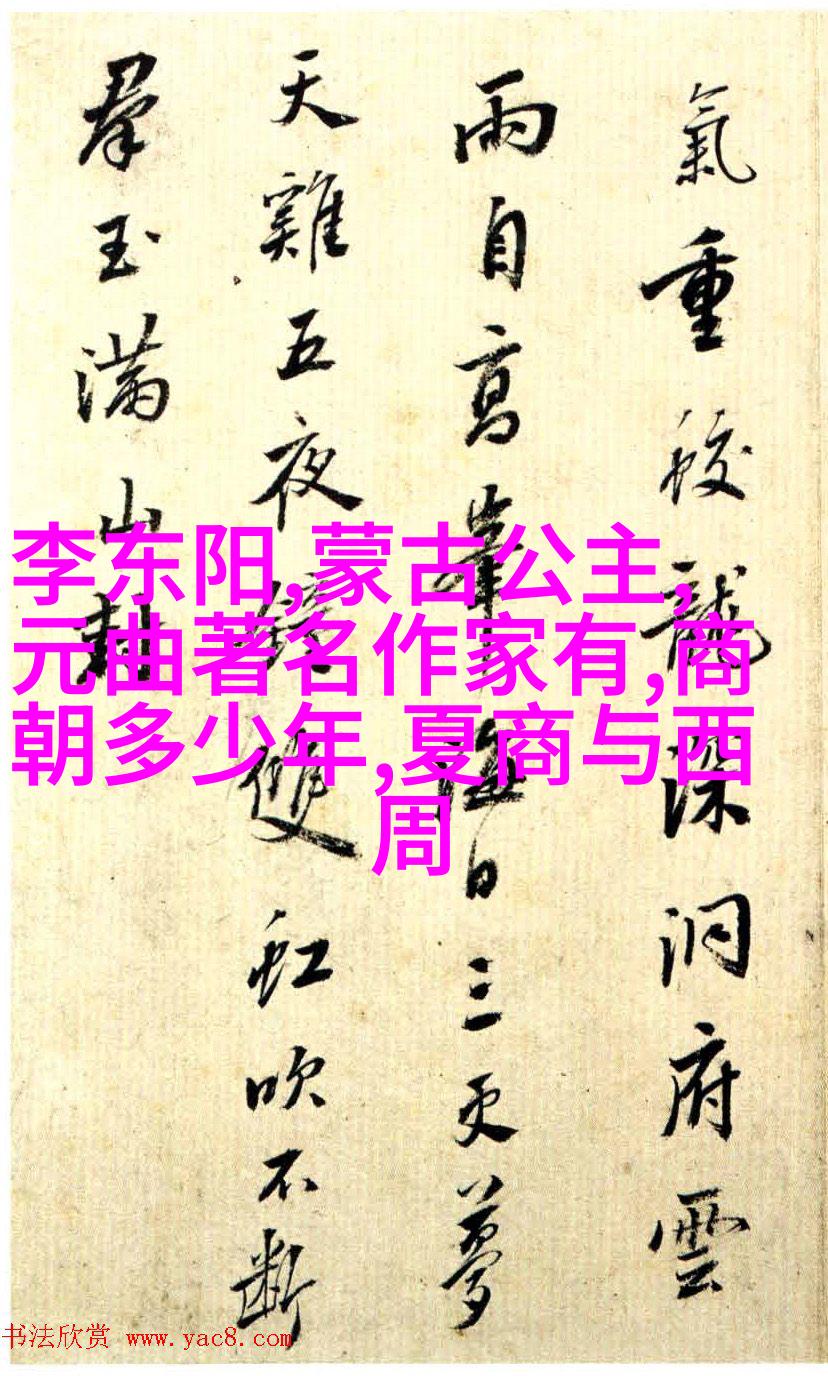 氣重蛟龍深洞府雲
雨自高峯海日三更夢
天雞五夜雙虹吹不斷
羣玉滿山
李东阳,蒙古公主,
元曲著名作家有,商
朝多少年,夏商与西
周
书法欣赏 www.yac8.com